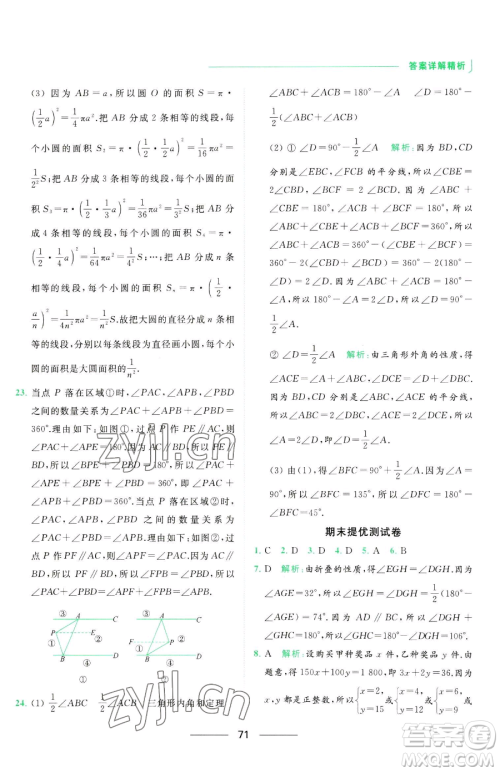 答案详解精析
(3) 因为 AB=a，所以圆 O 的面积 S=π·
(1/2 a)²=1/4 πa². 把 AB 分成 2 条相等的线段，每
个小圆的面积 S₂=π·(1/2·1/2 a)²=1/16 πa²=
1/2² S；把 AB 分成 3 条相等的线段，每个小圆的面
积 S₃=π·(1/2·1/3 a)²=1/36 πa²=1/3² S；把 AB 分
成 4 条相等的线段，每个小圆的面积 S₄=π·
(1/2·1/4 a)²=1/64 πa²=1/4² S；…；把 AB 分成 n 条
相等的线段，每个小圆的面积 Sₙ=π·(1/2·
a/n)²=1/4n² πa²=1/n² S. 故把大圆的直径分成 n 条
相等的线段，以每条线段为直径画小圆，每个小
圆的面积是大圆面积的1/n².
23. 当点 P 落在区域①时，∠PAC，∠APB，∠PBD
之间的数量关系为∠PAC+∠APB+∠PBD=
360°. 理由如下：如图①，过点 P 作 PE∥AC，则
∠PAC+∠APE=180°. 因为 AC∥BD，所以
PE∥BD，所以∠PBD+∠BPE=180°，所以
∠PAC+∠APE+∠PBD+∠BPE=360°，即
∠PAC+∠APB+∠PBD=360°. 当点 P 落在区
域②时，∠PAC，∠APB，∠PBD 之间的数量关
系为∠APB=∠PAC+∠PBD. 理由如下：如图
②，过点 P 作 PF∥AC，则∠PAC=∠APF. 因为
AC∥BD，所以 PF∥BD，所以∠FPB=∠PBD，
所以∠APF+∠FPB=∠PAC+∠PBD，即
∠APB=∠PAC+∠PBD.
③ ① A C P E ④ B D ② ①
③ A C ① P F ④ B D ② ②
24. (1) 1/2∠ABC 1/2∠ACB 三角形内角和定理
∠ABC+∠ACB=180° 180°-
1/2(∠ABC+∠ACB)
(2) ① ∠D=90°-1/2∠A 解析：因为 BD，CD
分别是∠EBC，∠FCB 的平分线，所以∠CBE=
2∠CBD，∠BCF=2∠BCD，所以∠CBE+
∠BCF=2(∠CBD+∠BCD)=2(180°-
∠D)=360°-2∠D. 因为∠ABC+∠CBE+
∠ACB+∠BCF=360°，所以∠ABC+∠ACB=
360°-2(180°-∠D)=2∠D. 因为∠ABC+
∠ACB=180°-∠A=2∠D，所以∠D=90°-
1/2∠A.
② ∠D=1/2∠A 解析：由三角形外角的性质，得
∠ACE=∠A+∠ABC，∠DCE=∠D+∠DBC.
因为 BD，CD 分别是∠ABC，∠ACE 的平分线，
所以∠ACE=2∠DCE，∠ABC=2∠DBC，所以
∠D=1/2∠A.
(3) 由(1)得，∠BFC=90°+1/2∠A=90°+
∠BFC=45°.
期末提优测试卷
1. C 2. D 3. D 4. D 5. A 6. B
7. D 解析：由折叠的性质，得∠EGH=∠DGH. 因为
∠AGE=32°，所以∠EGH=∠DGH=1/2(180°-
∠AGE)=74°. 因为∠AGH+∠DGH=180°，
∠GHC+∠AGH=180°，所以∠GHC=∠DGH=106°.
8. A 解析：设购买甲种奖品 x件，乙种奖品 y件. 根据
题意，得 150x+100y=1 800，即 3x+2y=36. 因为
x，y 都是正整数，所以{x=2, y=15 {x=4, y=12 {x=6, y=9
71
zyjl.cn
zyjl.cn
答案圈
MXQE.COM